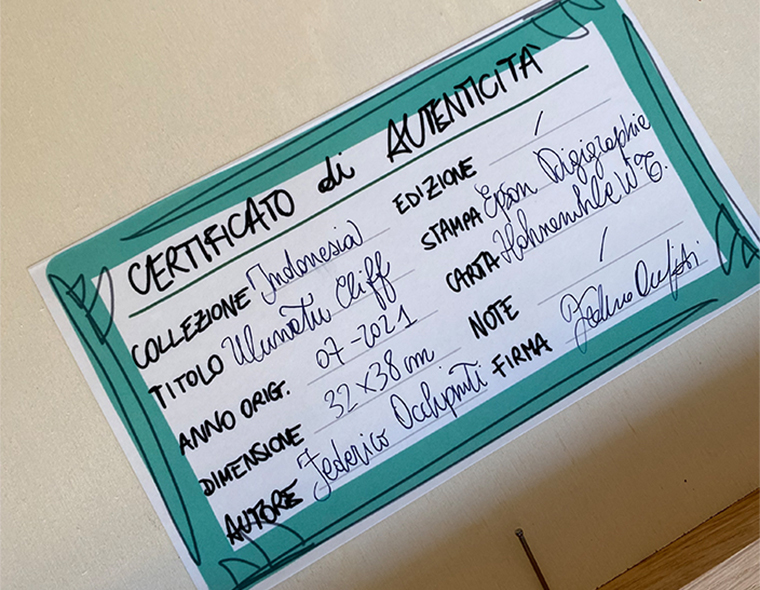 CERTIFICATO di AUTENTICITÀ
COLLEZIONE Indonesia
TITOLO Uluwatu Cliff
ANNO ORIG. 07-2021
DIMENSIONE 32x38 cm
AUTORE Federico Occhipinti
EDIZIONE /
STAMPA Epson Digigraphie
CARTA Hahnemhle
NOTE /
FIRMA Federico Occhipinti